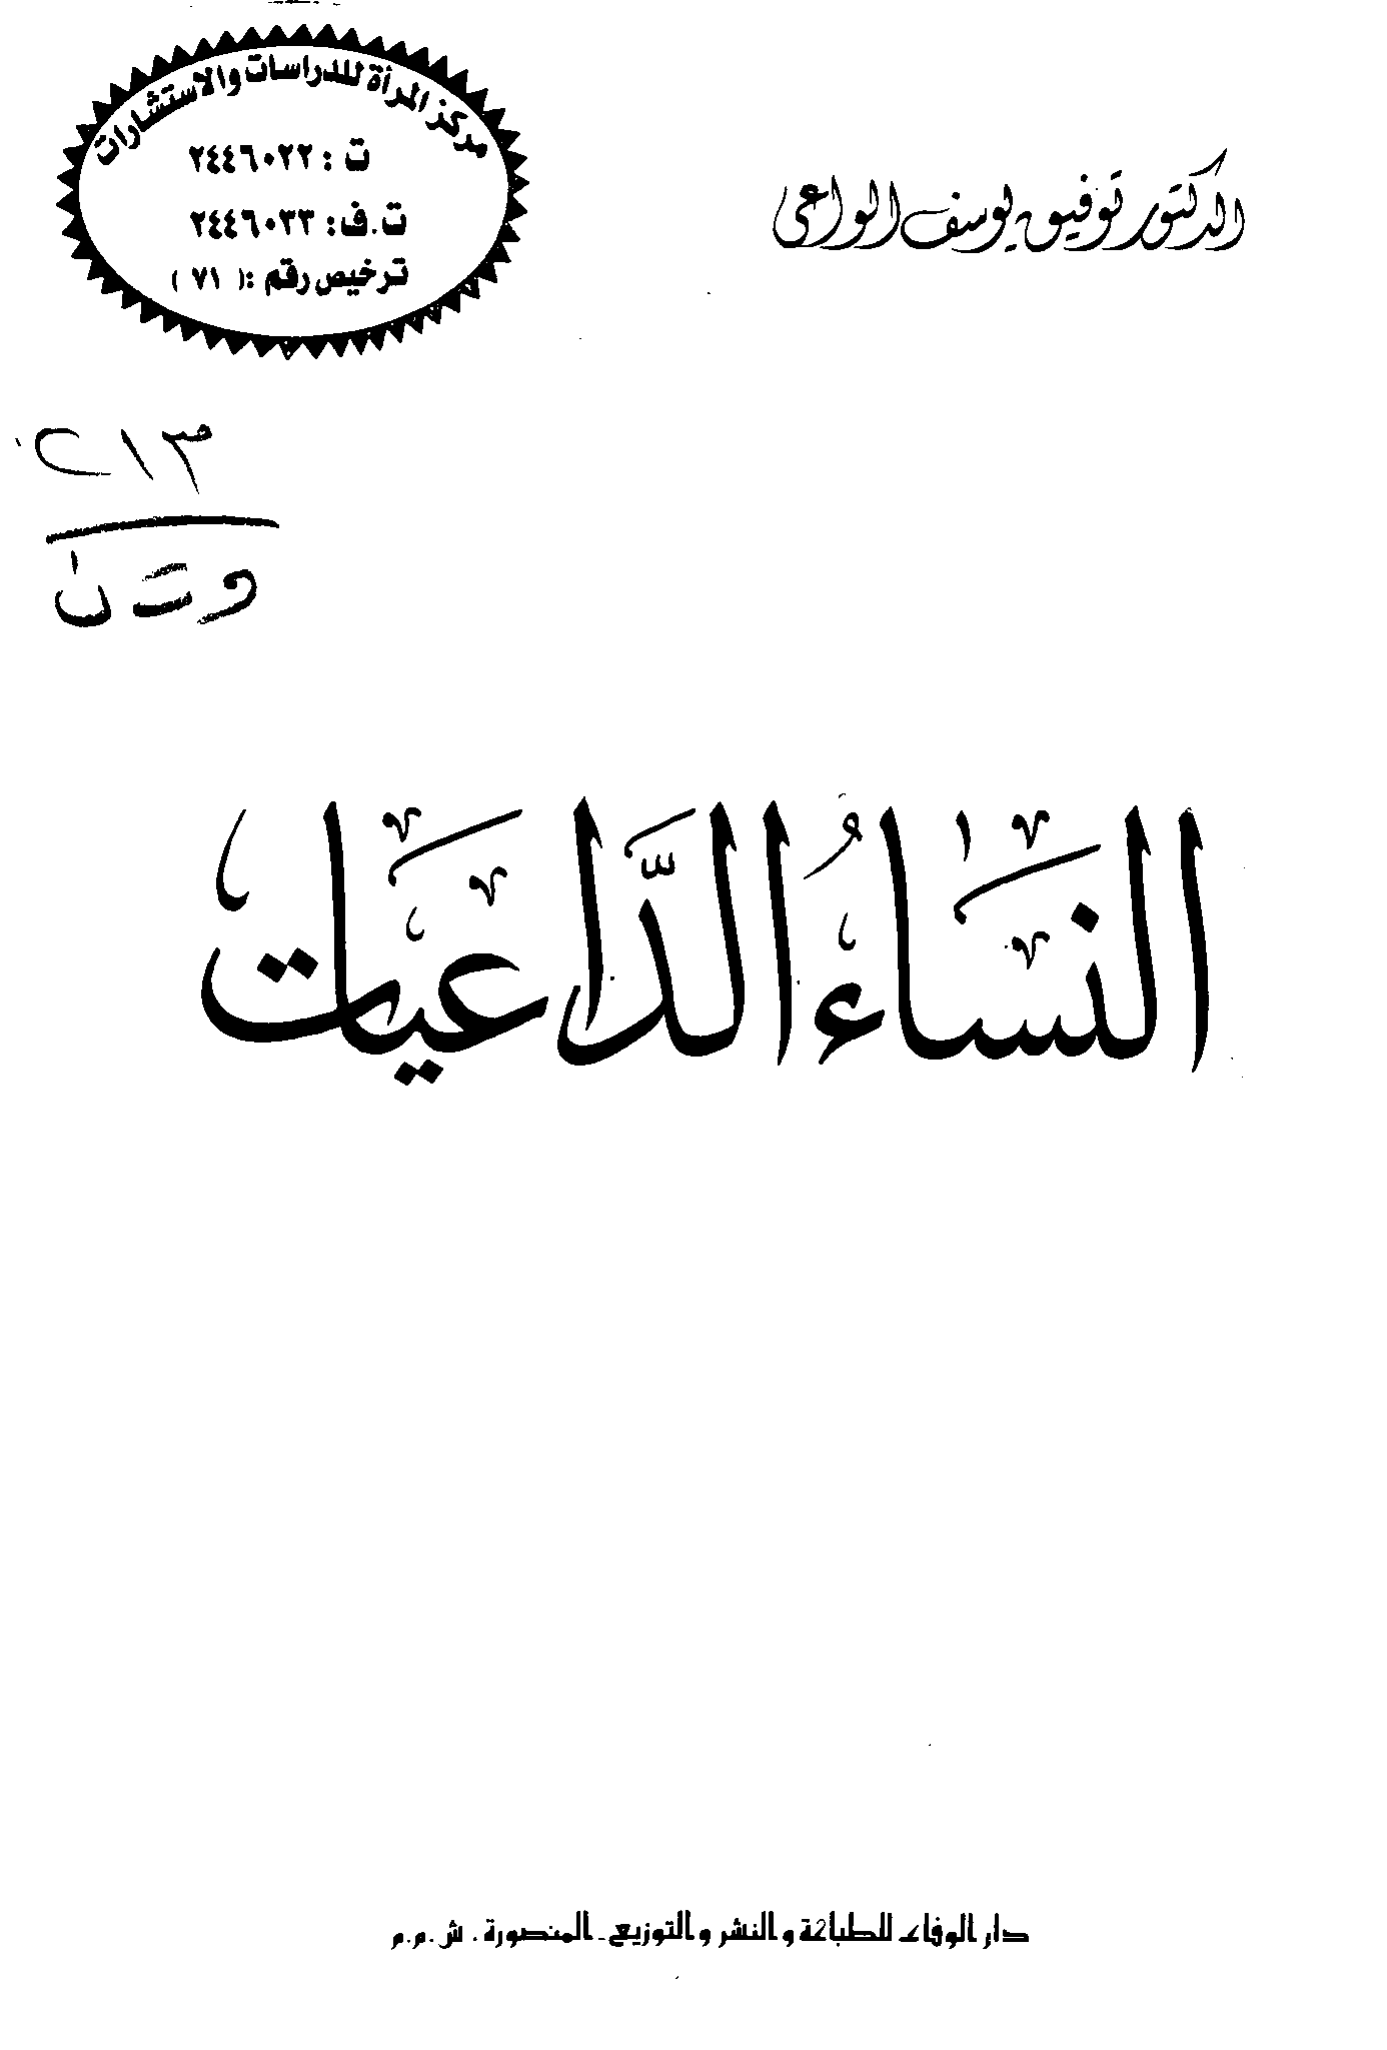 مركز المرأة للدراسات والاستشارات
ت : ٢٤٤٦٠٢٢
ت.ف: ٢٤٤٦٠٣٣
ترخيص رقم :( ٧١ )
الدكتور توفيق يوسف الواعى
٢١٣
النِّسَاءُ الدَّاعِيَات
دار الوفاء للطباعة والنشر والتوزيع - المنصورة . ش.م.م